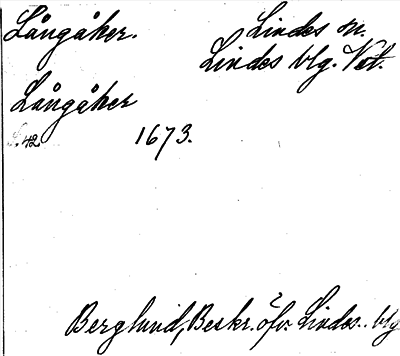 Långåker. Lindes sn.
Lindes blg. Vstl.
Långåker
42. 1673.
Berglund, Beskr. öfv. Lindes.. blg